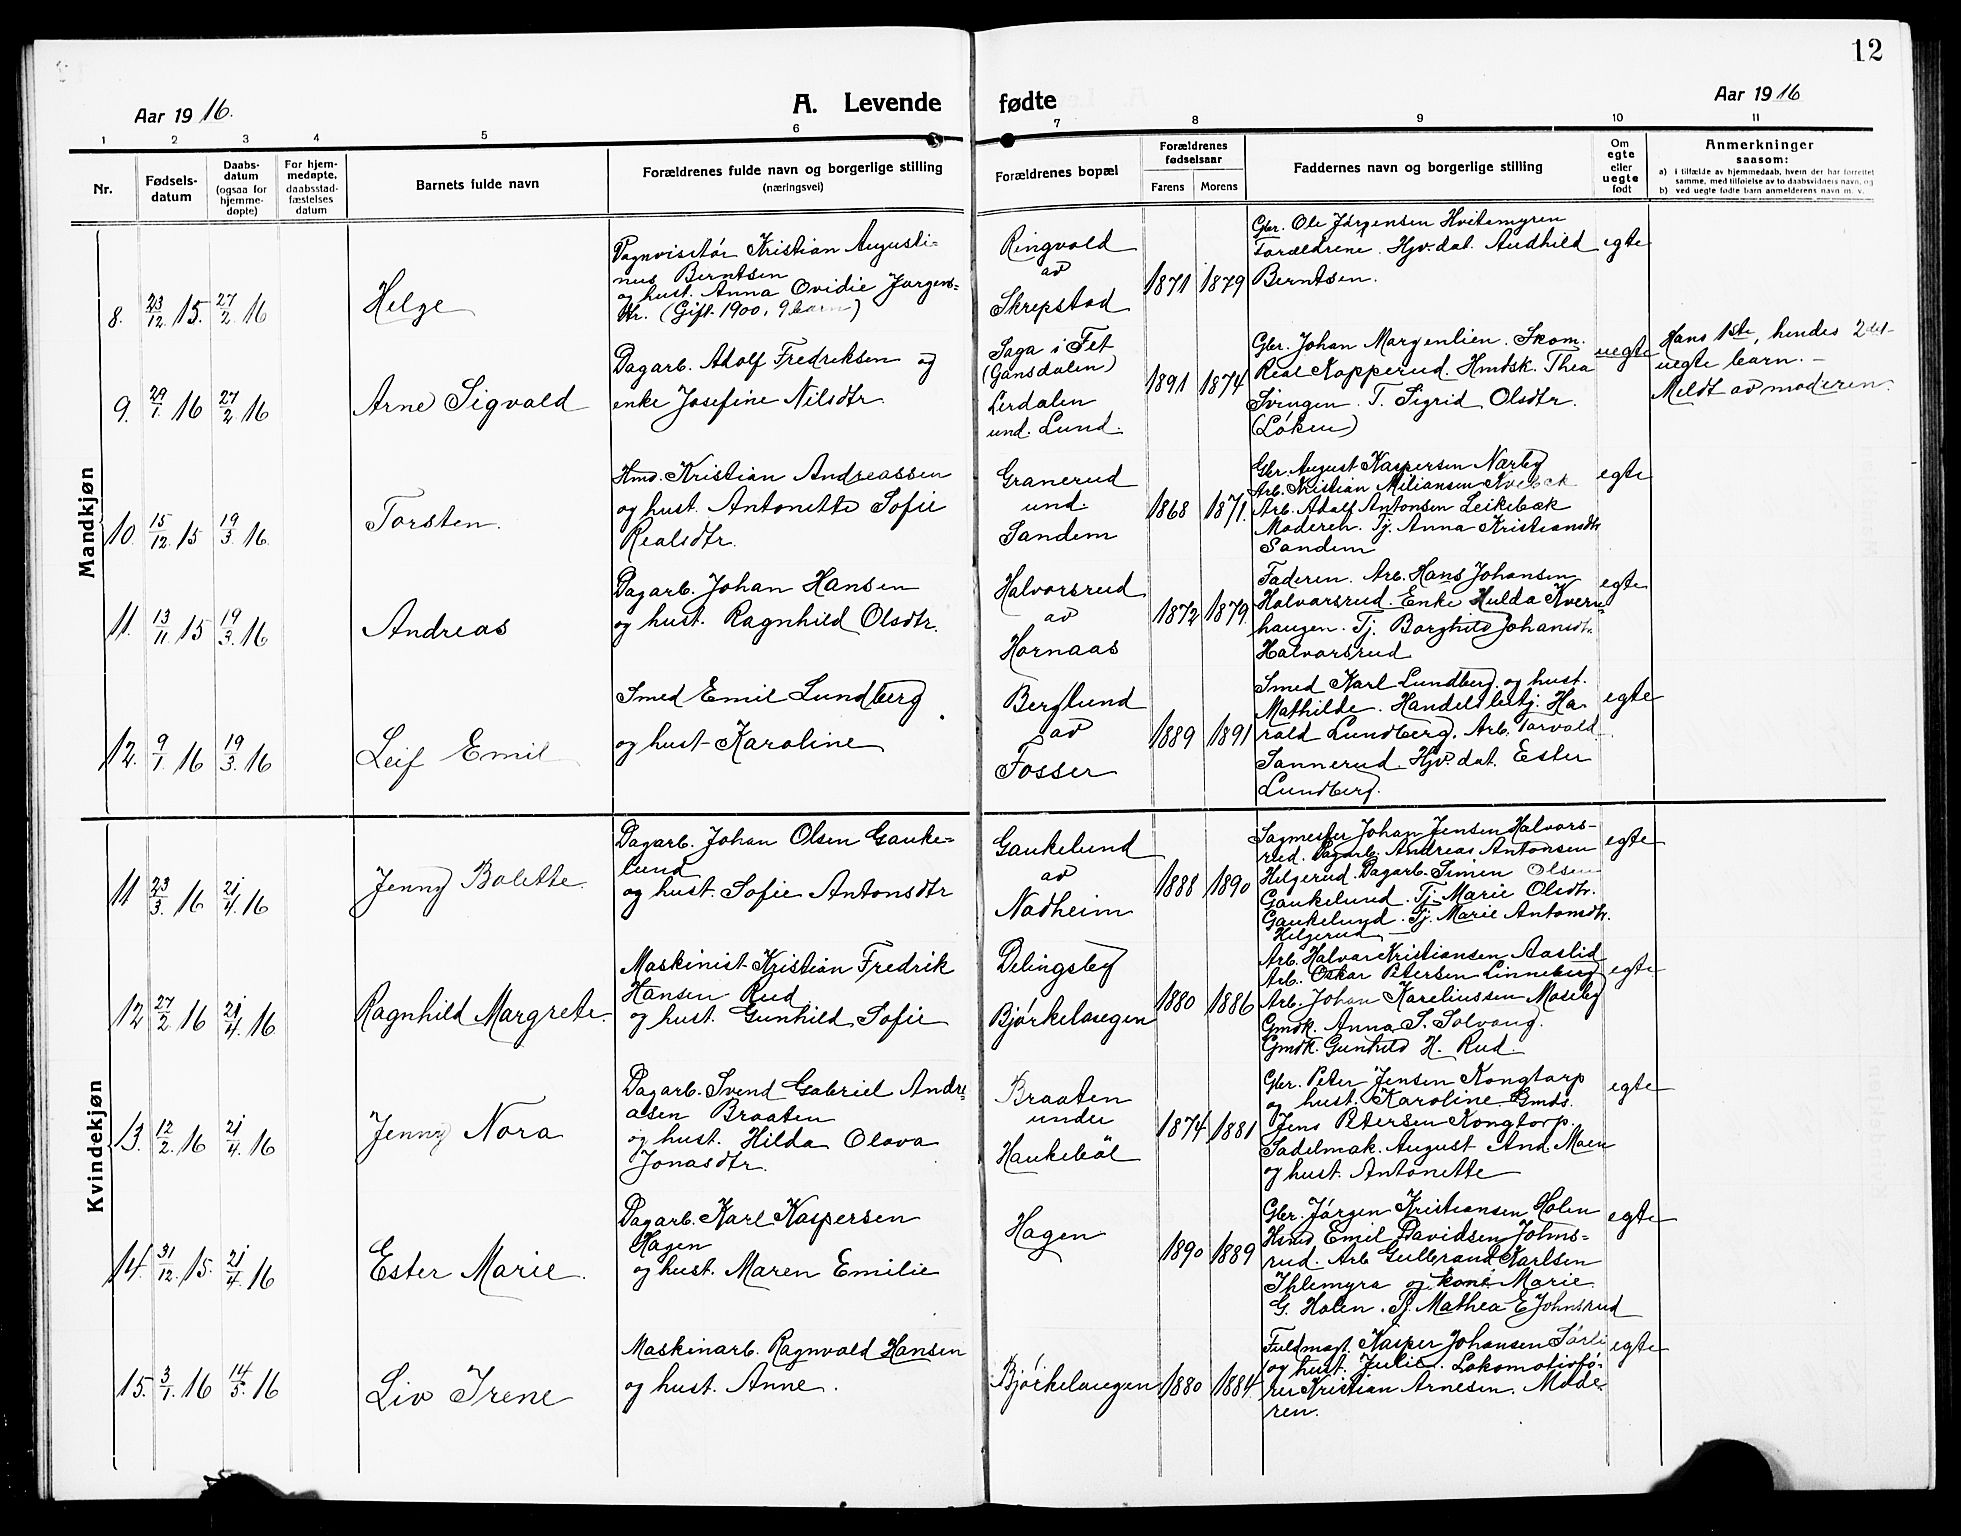 12
Aar 1916.
A. Levende fødte
Aar 1916
1 2 3 4 5 6 7 8 9 10 11
Nr.
Fødsels-
datum
Daabs-
datum
(ogsaa for
hjemme-
døpte)
For hjem-
medøpte,
daabsstad-
fæstelses
datum
Barnets fulde navn
Forældrenes fulde navn og borgerlige stilling
(næringsvei)
Forældrenes bopæl
Forældrenes
fødselsaar
Farens Morens
Faddernes navn og borgerlige stilling
Om
egte
eller
uegte
født
Anmerkninger
saasom:
a) i tilfælde av hjemmedaab, hvem der har forrettet
samme, med tilføielse av to daabsvidners navn, og
b) ved uegte fødte barn anmelderens navn m. v.
Mandkjøn
8. 23/12. 15. 27/2. 16
Helge
Vognvisitør Kristian Augusti-
nus Berntsen
og hust. Anna Ovidie Jørgens-
dtr. (Gift 1900, 9 barn)
Ringvold
av
Skrepstad
1871 1879
Gbr. Ole Jørgensen Hvitemyren
Forældrene. Hjv. dat. Audhild
Berntsen.
egte
9. 29/1. 16 27/2. 16
Arne Sigvald
Dagarb. Adolf Fredriksen og
enke Josefine Nilsdtr.
Saga i Fet
(Gansdalen)
Lerdalen
und. Lund.
1891 1874
Gbr. Johan Margenlien. Skom.
Real Kopperud. Hmdsk. Thea
Svingen. T. Sigrid Olsdtr.
(Løken)
uegte
Hans 1ste, hendes 2det
uegte barn. –
Meldt av moderen.
10. 15/12. 15 19/3. 16.
Torsten.
Hmd. Kristian Andreassen
og hust. Antonette Sofie
Realsdtr.
Granerud
und.
Sandem
1868 1871.
Gbr. August Kaspersen Nærby
Arb. Kristian Miliansen Kvebæk
Arb. Adolf Antonsen Leikebæk
Moderen. Tj. Anna Kristiansdtr
Sandem
egte
11. 13/11. 15 19/3. 16
Andreas
Dagarb. Johan Hansen
og hust. Ragnhild Olsdtr.
Halvorsrud
av
Hornaas
1872 1879.
Faderen. Arb. Hans Johansen
Halvorsrud. Enke Hulda Kvern-
haugen. Tj. Borghild Johansdtr.
Halvorsrud
egte
12. 9/1. 16 19/3. 16
Leif Emil
Smed Emil Lundberg
og hust. Karoline
Berglund
av
Fosser
1889 1891
Smed Karl Lundberg og hust.
Mathilde. Handelsbetj. Ha-
rald Lundberg. Arb. Torvald
Sannerud. Hjv. dat. Ester
Lundberg.
egte
Kvindekjøn
11 23/3. 16 21/4. 16
Jenny Bolette.
Dagarb. Johan Olsen Gauke-
lund
og hust. Sofie Antonsdtr
Gaukelund
av
Nadheim
1888 1890
Sagmester Johan Jensen Halvors-
rud. Dagarb. Andreas Antonsen
Helgerud. Dagarb. Simen Olsen
Gaukelund. Tj. Marie Olsdtr.
Gaukelund. Tj. Marie Antonsdtr.
Helgerud –
egte
12 27/2. 16 21/4. 16
Ragnhild Margrete.
Maskinist Kristian Fredrik
Hansen Rud
og hust. Gunhild Sofie
Delingsby
Bjørkelangen
1880 1886
Arb. Halvor Kristiansen Aaslid
Arb. Oskar Petersen Linneberg
Arb. Johan Kareliussen Moseby
Gmdk. Anna S. Solvang.
Gmdk. Gunhild H. Rud.
egte
13. 12/2. 16 21/4. 16
Jenny Nora
Dagarb. Svend Gabriel Andre-
asen Braaten
og hust. Hilda Olava
Jonasdtr.
Braaten
under
Haukebøl
1874 1881
Gbr. Peter Jensen Kongtorp
og hust. Karoline. Gmds.
Jens Petersen Kongtorp.
Sadelmak. August And. Moen
og hust. Antonette
egte
14. 31/12. 15. 21/4. 16
Ester Marie.
Dagarb. Karl Kaspersen
Hagen
og hust. Maren Emilie
Hagen
1890 1889
Gbr. Jørgen Kristiansen Holen
Hmd Emil Davidsen Johns-
rud. Arb. Gulbrand Karlsen
Ihlemyra og kone Marie
G. Holen. Tj. Mathea E Johnsrud
egte
15. 3/1. 16 14/5. 16
Liv Irene
Maskinarb. Ragnvald Hansen
og hust. Anne.
Bjørkelangen
1880 1884.
Fuldmægt. Kasper Johansen Sørli
og hust. Julie. Lokomotivfø-
rer Kristian Arnesen. Mode-
ren.
egte